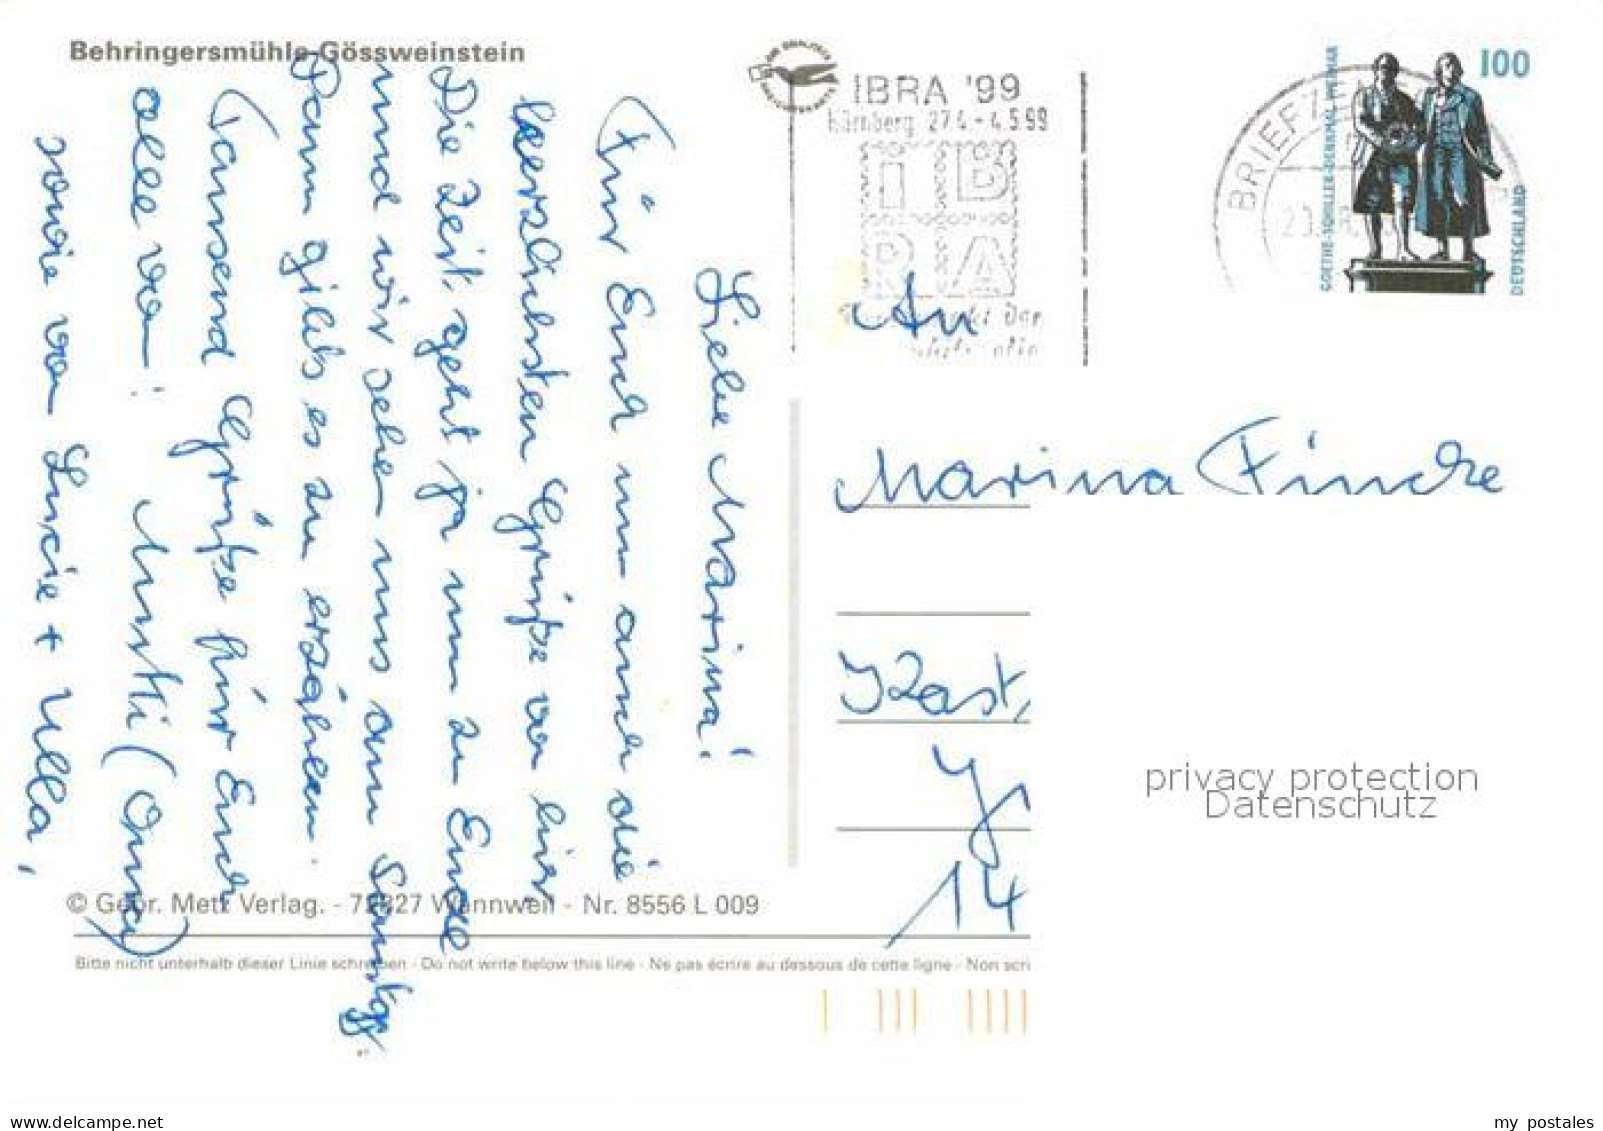 Behringersmühle-Gössweinstein
Liebe Marina!
Für Euch nun auch die
herzlichsten Grüße von hier.
Die Zeit geht ja nun zu Ende
und wir sehen uns am Samstag.
Dann gibts es zu erzählen.
Tausend Grüße für Euch
alle von: Mutti (Oma)
sowie von Lucie + Ulla,
© Gebr. Metz Verlag. - 72827 Wannweil - Nr. 8556 L 009
Bitte nicht unterhalb dieser Linie schreiben - Do not write below this line - Ne pas écrire au dessous de cette ligne - Non scri
IBRA '99
Nürnberg 27.4.-4.5.99
IB
RA
BRIEFZ
100
GOETHE-SCHILLER-DENKMAL WEIMAR
DEUTSCHLAND
An
Marina Fincke
14
privacy protection
Datenschutz
www.delcampe.net
my_postales